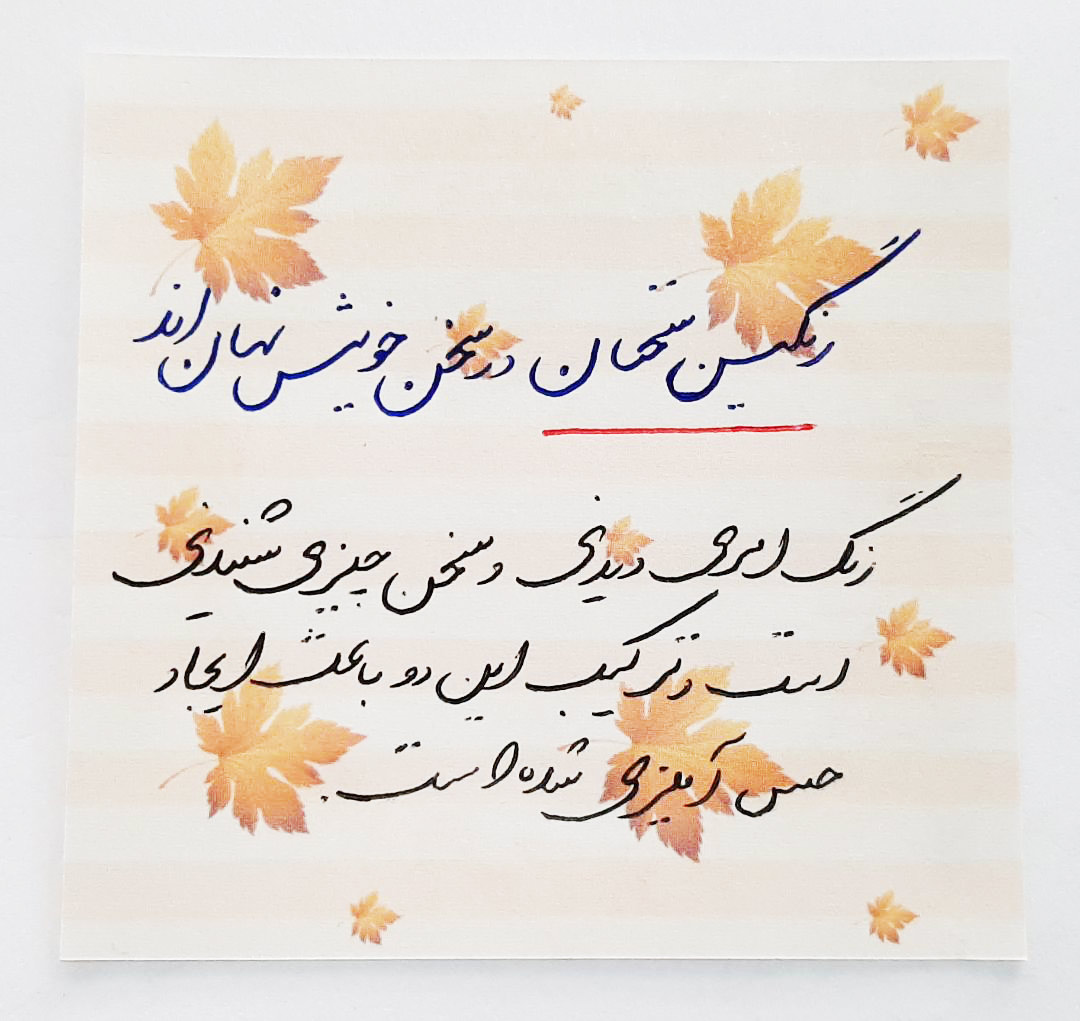 رنگین سخنان در سخن خویش نهان اند
رنگ امری دیدنی و سخن چیزی شنیدنی
است و ترکیب این دو باعث ایجاد
حس آمیزی شده است.